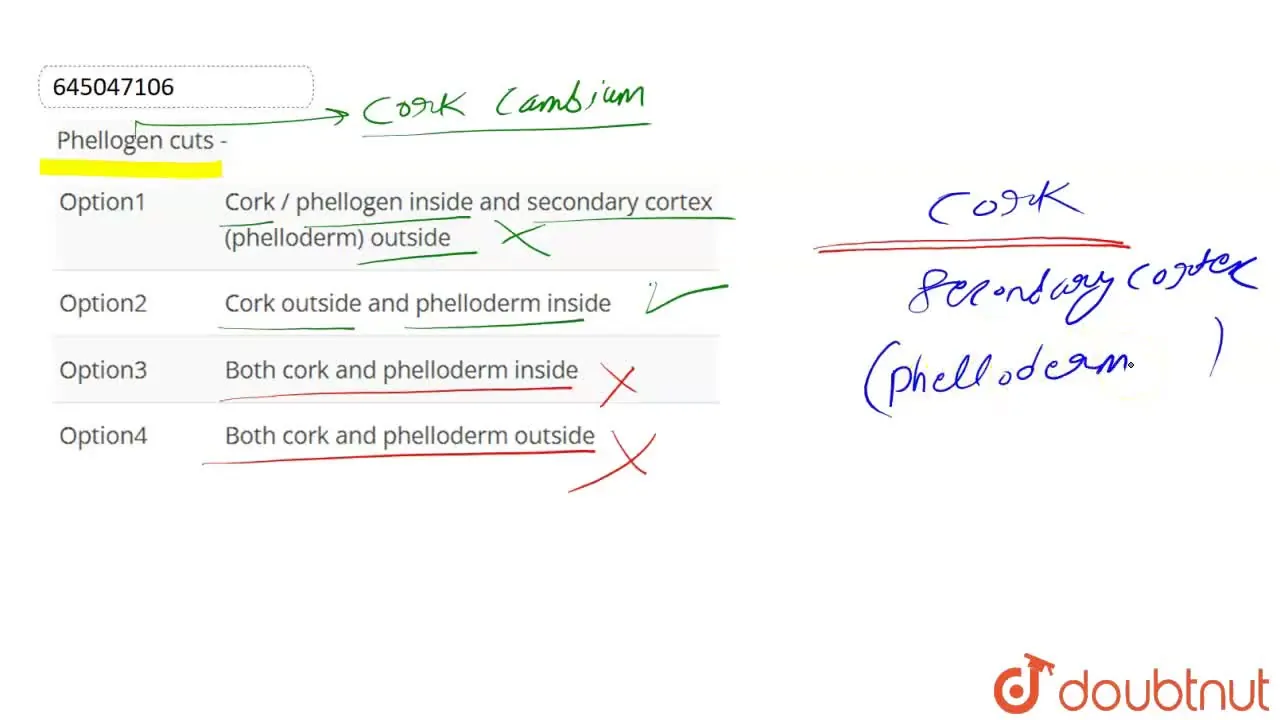 645047106
Cork Cambium
Phellogen cuts -
Option1 Cork / phellogen inside and secondary cortex
(phelloderm) outside
Option2 Cork outside and phelloderm inside
Option3 Both cork and phelloderm inside
Option4 Both cork and phelloderm outside
Cork
Secondary cortex
(phelloderm )
doubtnut